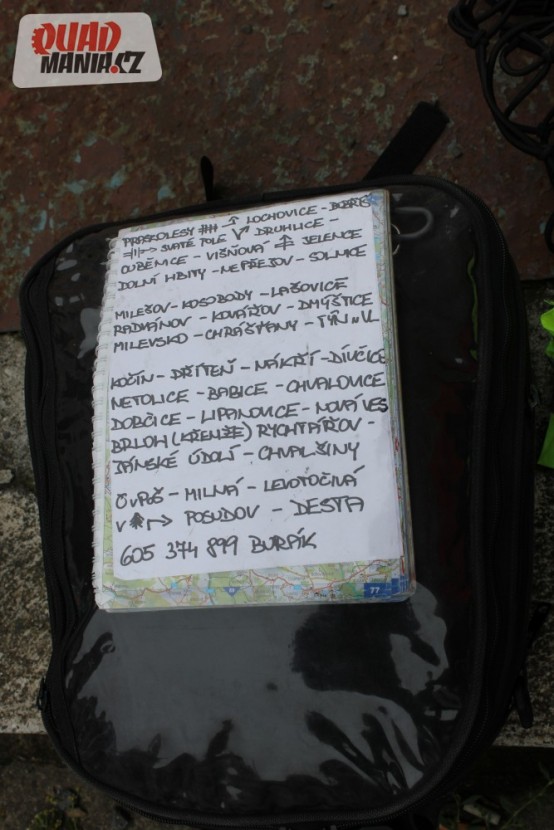 QUAD
MANIA.CZ
PRASKOLESY - LOCHOVICE - DOBŘÍŠ
SVATÉ POLE DRUHLICE -
OUBĚNICE - VIŠŇOVÁ JELENCE
DOLNÍ HBITY - NEPŘEJOV - SOLNICE
MILEŠOV - KOSOBODY - LAŠOVICE
RADVÁNOV - KOVÁŘOV - DMÝŠTICE
MILEVSKO - CHRÁŠŤANY - TÝN n. VL
KOČÍN - DŘÍTEŇ - NÁKŘÍ - DÍVČICE
NETOLICE - BABICE - CHVALOVICE
DOBČICE - LIPANOVICE - NOVÁ VES
BRLOH (KŘENŽE) RYCHTÁŘOV -
JÁNSKÉ ÚDOLÍ - CHVALŠINY
- MILNÁ - LEVOTOČIVÁ
V POSUDOV - DESTA
605 374 899 BURPÁK
77